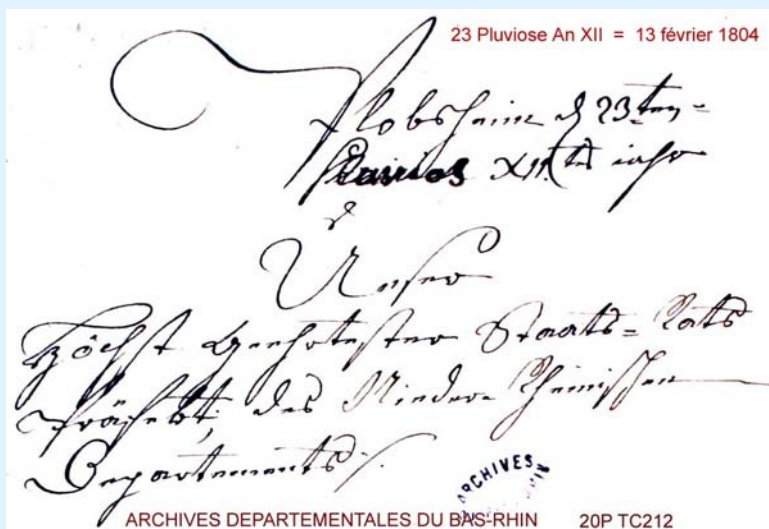 23 Pluviose An XII = 13 février 1804
Plobsheim d 23ten
XII.tes jahr
Unser
Höchst geehrtester Staats=Rats
Präfekt, des Nieder-Rheinischen
Departements
ARCHIVES
ARCHIVES DEPARTEMENTALES DU BAS-RHIN 20P TC212